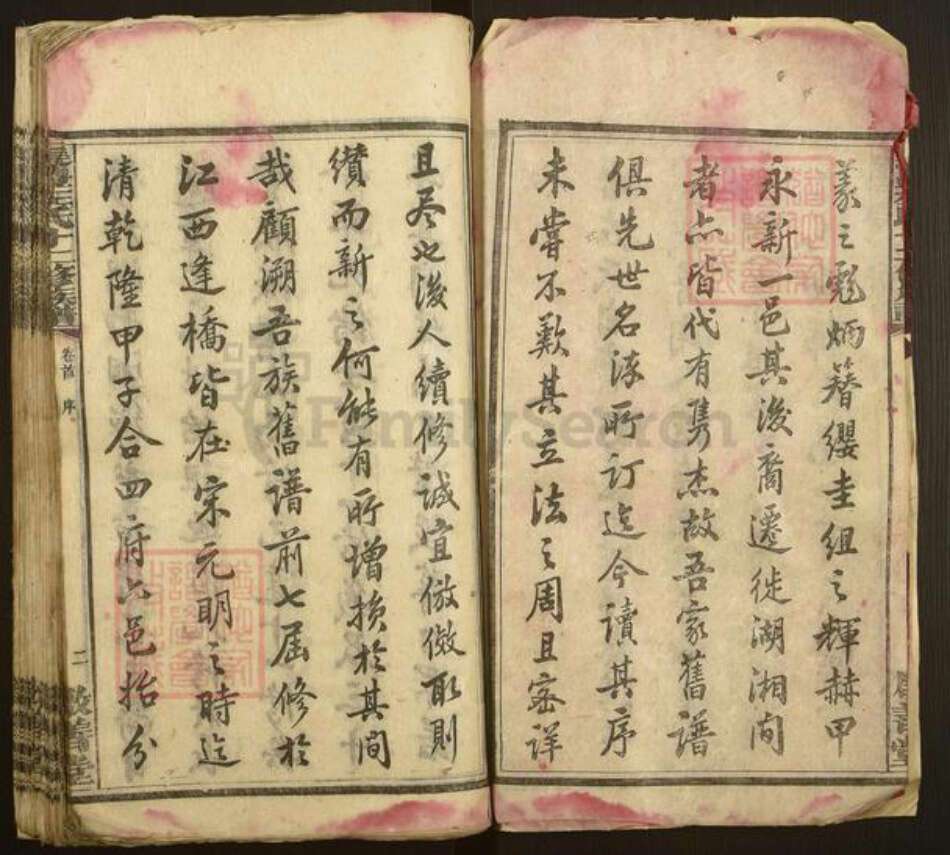 義之彪炳簪纓圭组之輝赫甲
永新一邑其後裔遷徙湖湘间
者亦皆代有隽杰故吾家舊譜
俱先世名流所订迄今讀其序
未嘗不歎其立法之周且密详
且尽也後人續修诚宜倣傚取則
纘而新之何能有所增损於其间
哉顧溯吾族舊譜前七届修於
江西逢橋皆在宋元明之時迄
清乾隆甲子合四府六邑抬分
卷首 序
二
FamilySearch